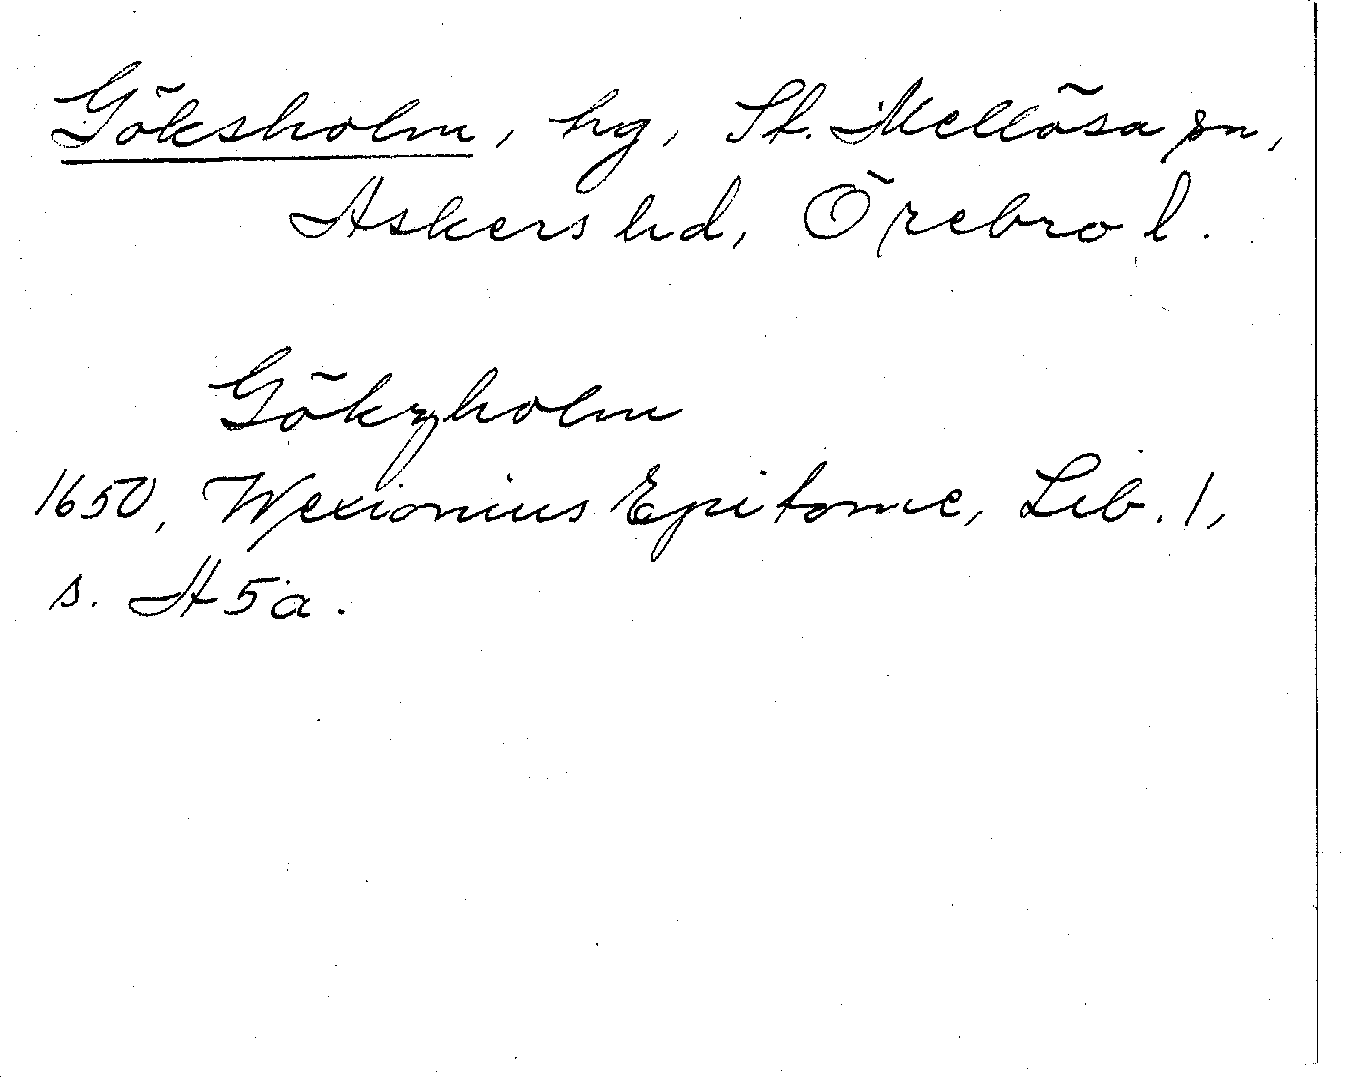 Göksholm, hg, St. Mellösa sn,
Askers hd, Örebro l.
Gökzholm
1650, Wexionius Epitome, Lib. 1,
s. H5a.